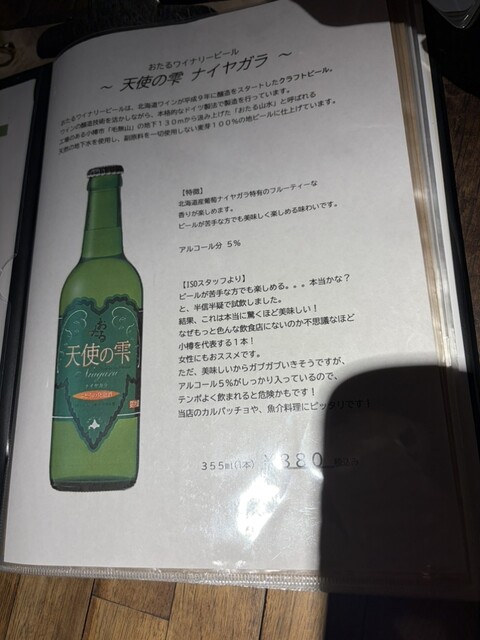 おたるワイナリービール
～ 天使の雫 ナイヤガラ ～
おたるワイナリービールは、北海道ワインが平成9年に醸造をスタートしたクラフトビール。
ワインの醸造技術を活かしながら、本格的なドイツ製法で製造を行っています。
工場のある小樽市「毛無山」の地下130mから汲み上げた「おたる山水」と呼ばれる
天然の地下水を使用し、副原料を一切使用しない麦芽100%の地ビールに仕上げています。
【特徴】
北海道産葡萄ナイヤガラ特有のフルーティーな
香りが楽しめます。
ビールが苦手な方でも美味しく楽しめる味わいです。
アルコール分 5%
【ISOスタッフより】
ビールが苦手な方でも楽しめる。。。本当かな？
と、半信半疑で試飲しました。
結果、これは本当に驚くほど美味しい！
なぜもっと色んな飲食店にないのか不思議なほど
小樽を代表する1本！
女性にもおススメです。
ただ、美味しいからガブガブいきそうですが、
アルコール5%がしっかり入っているので、
テンポよく飲まれると危険かもです！
当店のカルパッチョや、魚介料理にピッタリです！
355ml(1本) ¥880
おたる
天使の雫
Niagara